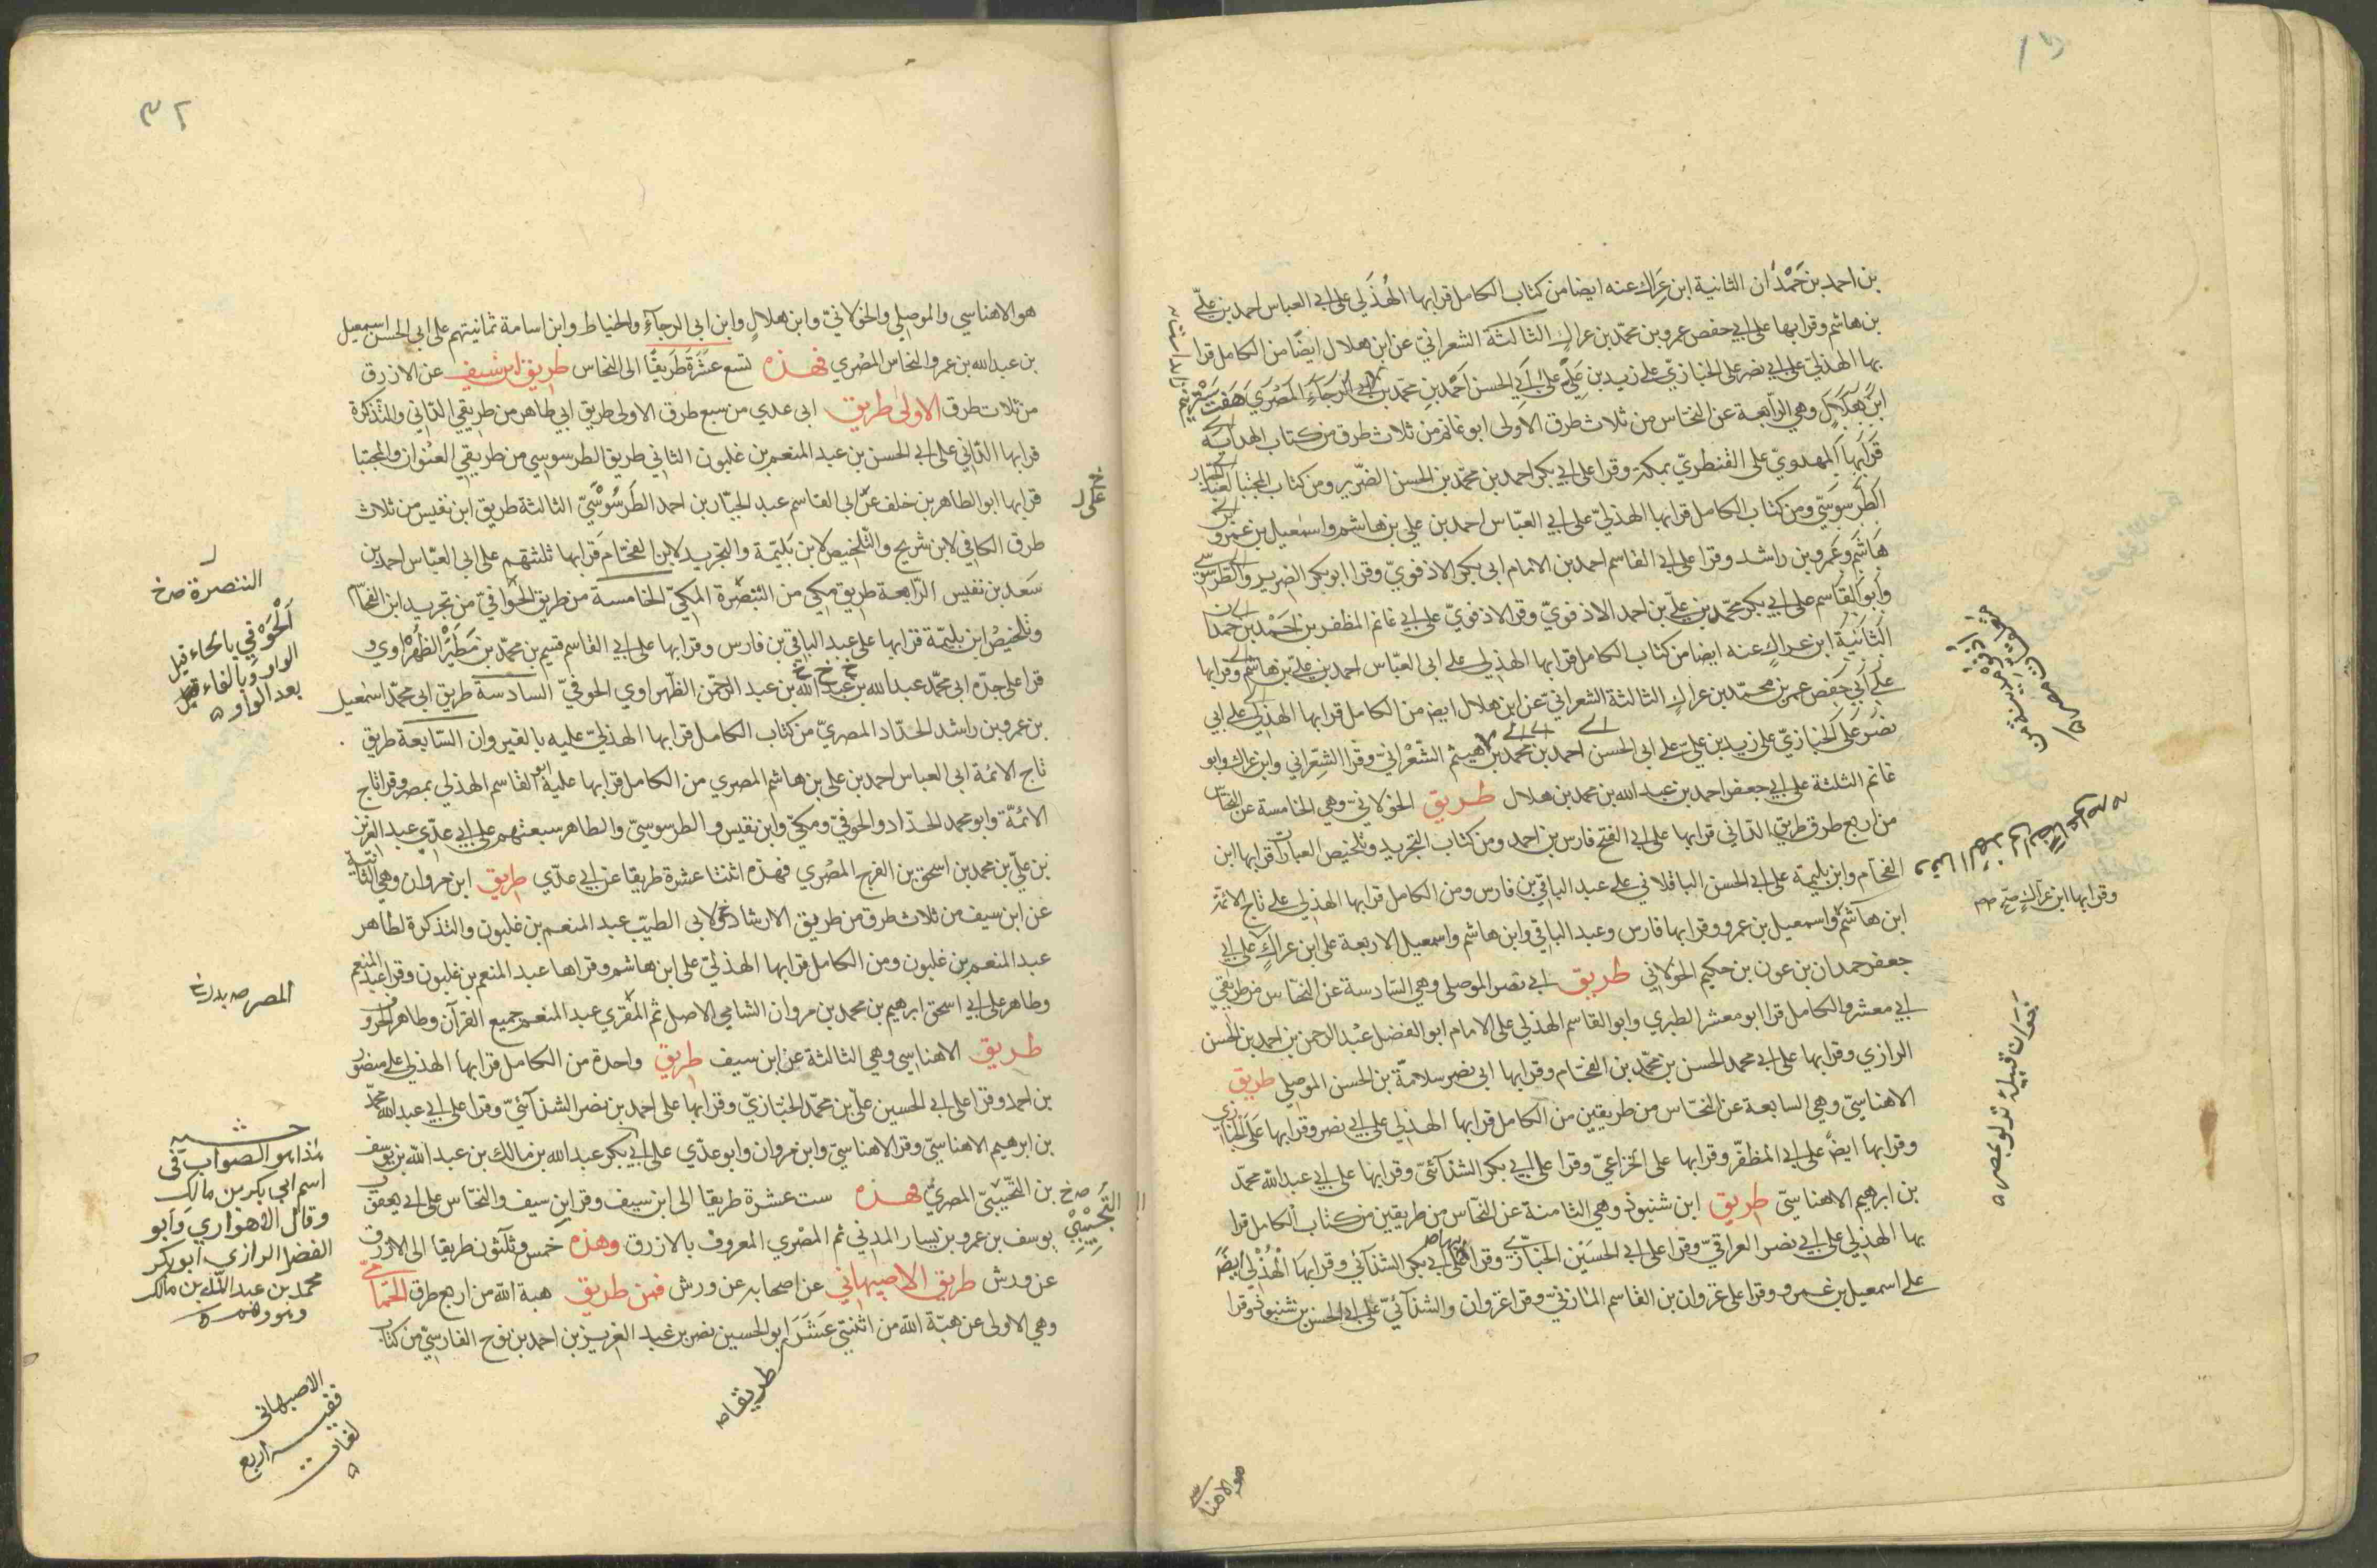 بن احمد بن حَمْدَان الثانية ابن عِرَاك عنه ايضا من كتاب الكامل قرا بها الهُذَلي على ابي العباس احمد بن عليّ
بن هاشم وقرا بها على ابي حفص عمرو بن محمّد بن عراك الثالثة الشعرانيّ عن ابن هلال ايضًا من الكامل قرا
بها الهذليّ على ابي نصر على الخبازيّ على زيد بن عَلِيّ على اَبي الحسن احْمَد بنِ محمّد بن
ابن هَلَالٍ وهي الرّابعة عن النحّاس من ثلاث طرق الاولى ابو غانم من ثلاث طرق من كتاب الهداية
قَرَا بِهَا المهدويّ على القنطريّ بمكّة وقرا على ابي بكر احمد بن محمّد بن الحسن الضّرير ومن كتاب المجتبا لعبد الجبّار
الطَرسُوسَيّ ومن كتاب الكامل قرا بها الهذليّ على ابي العبّاس احمد بن علي بن هاشم واسمعيل بن عَمْرو
وعَمرو بن راشد وقرا على ابي القاسم احمد بن الامام ابي بكر الاذفويّ وقرا ابو بكر الضرير والطَّرَسُوسي
وابو القاسم على ابي بكر محمّد بن عليّ بن احمد الاذفويّ وقرا الاذفويّ على ابي غانم المظفر بن احمد بن حَمدان
الثانيَةُ ابن عراكٍ عنه ايضا من كتاب الكامل قرا بها الهذلي على ابي العبّاس احمد بن عليّ بن هاشم وقرا بها
علي اَبي حَفص عمر بن محمّد بن عراكٍ الثالثة الشعرانيّ عن ابن هلال ايضا من الكامل قرا بها الهذلي على ابي
نصْر على الخبازيّ على زيد بن عليّ على ابي الحسن احمد بن محمد بن هيثم الشّعْرانيّ وقرا الشِعراني وابن عراك وابو
غانم الثلثة على ابي جعفر احمد بن عبد الله بن محمد بن هلال طريق الخولانيّ وهي الخامسة عن النحّاس
من اربع طرق طريق الدّاني قرا بها على ابي الفتح فارس بن احمد ومن كتاب التجريد وتلخيص العبارات قرا بها ابن
الفحّام وابن بليمة على ابي الحسن الباقلاني على عبد الباقي بن فارس ومن الكامل قرا بها الهذلي على تاج الائمة
ابن هاشم واسمعيل بن عمرو وقرا بها فارس وعبد الباقي وابن هاشم واسمعيل الاربعة على ابن عراكٍ على ابي
جعفر حمدان بن عون بن حكيم الخولاني طريق ابي نصر الموصلي وهي السّادسة عن النحّاس من طريقي
ابي معشر والكامل قرا ابو معشر الطبري وابو القاسم الهذلي على الامام ابو الفضل عبْد الرحمن بن احمد بن الحسن
الرازي وقرا بها على ابي محمد الحسن بن محمّد بن الفحّام وقرا بها ابي نصر سلامة بن الحسن الموصلي طريق
الاهناسيّ وهي السابعة عن النحّاس من طريقين من الكامل قرا بها الهذلي على ابي نصر وقرا بها عَلَى الخبّازي
وقرا بها ايضً على ابي المظفّر وقرا بها على الخزاعيّ وقرا على ابي بكر الشذآئيّ وقرا بها على ابي عبد الله محمّد
بن ابرهيم الاهناسيّ طريق ابن شنبوذ وهي الثامنة عن النحّاس من طريقين من كتاب الكامل قرا
بها الهذلي على ابي نصر العراقيّ وقرا على ابي الحسَيْن الخبّازيّ وقرا على ابي بكر الشذآئي وقرا بها الهُذْلي ايضً
على اسمعيل بن عمرو وقرا على غزوان بن القاسم المازنيّ وقرا غزوان والشذآئيّ على ابي الحسن بن شنبوذ وقرا
وقرا بها ابن عراكٍ صح
غزوان قبيلة نزلو بمصر
هو الاهناسي
٣٢
هو الاهناسي والموصلي والخولانيّ وابن هلالٍ وابن ابي الرجآءِ والخياط وابن اسامة ثمانيتهم على ابي الحسن اسمعيل
بن عبد الله بن عمرو النحاس المصْري فهذه تسع عَشَرةَ طَريقًا الى النحاس طريق ابن سيف عن الازرق
من ثلاث طرق الاولى طريق ابي عدي من سبع طرق الاولى طريق ابي طاهر من طريقي الدّاني والتذكرة
قرا بها الدّاني على ابي الحسن بن عبد المنعم بن غلبون الثاني طريق الطرسوسي من طريقي العنْوان والمجتبا
قرا بها ابو الطاهر بن خلف عن ابي القاسم عبد الجبّار بن احمد الطَرسُوسْيّ الثالثة طريق ابن نفيس من ثلاث
طرق الكافي لابن شريح والتّلخيص لابن بَليّمة والتجريد لابن الفحّام قرا بها ثلثتهم على ابي العبّاس احمد بن
سَعد بن نفيس الرّابعة طريق مكي من التبصّرة المكيّ الخامسة من طريق الحَوَافيّ من تجريد ابن الفحّام
وتلخيصُ ابن بليمّة قرا بها على عبد الباقي بن فارس وقرا بها على ابي القاسم قسيم بن محمّد بن مَطيَرْ الظهْراوي و
قرا على جدّه ابي محمّد عبد الله بن عبد الله بن عبد الرحمّن الظهراوي الحوفيّ السادسة طريق ابي محمّد اسمعيل
بن عمرو بن راشد الحدّاد المصريّ من كتاب الكامل قرا بها الهذليّ عليه بالقيروان السّابعة طريق
تاج الائمة ابي العباس احمد بن علي بن هاشم المصري من الكامل قرا بها عليه ابو القاسم الهذلي بمصر وقرا تاج
الائمّة وابو محمد الحدّاد والحوفيّ ومكيّ وابن نفيس والطرسوسيّ والطاهر سبعتهم على ابي عديّ عبد العزيز
بن عليّ بن محمد بن اسحق بن الفرج المصْري فهذه اثنتا عشرة طريقا عن ابي عدّي طريق ابن مروان وهي الثانية
عن ابن سيف من ثلاث طرق من طريق الارشاد لابي الطيّب عبد المنعم بن غلبون والتذكرة لطاهر
عبد المنعم بن غلبون ومن الكامل قرا بها الهذليّ على ابن هاشم وقراها عبد المنعم بن غلبون وقرا عبد المنعم
وطاهر على ابي اسحق ابرهيم بن محمد بن مروان الشامي الاصل ثم المقري عبد المنعم جميع القرآن وطاهر الحروف
طريق الاهناسي وهي الثالثة عن ابن سيف طريق واحدة من الكامل قرا بها الهذلي على منصور
بن احمد وقرا على ابي الحسين عليّ بن محمّد الخبّازيّ وقرا بها على احمد بن نصر الشذآئيّ وقرا على ابي عبد الله محمّد
بن ابرهيم الاهناسيّ وقرا الاهناسيّ وابن مروان وابو عدّي على ابي بكر عبد الله بن مالك بن عبد الله بن يوسف
بن التّجيبيّ المصريّ فهذه ست عشرة طريقا الى ابن سيف وقرا ابن سيف والنحّاس على ابي يعقوب
يوسف بن عمرو بن يسار المدني ثم المصْري المعروف بالازرق وهذه خمس وثلثون طريقا الى الازرق
عن ورش طريق الاصبهاني عن اصحابه عن ورش فمن طريق هبة الله من اربع طرق الحَمّامي
وهي الاولى عن هبة الله من اثنتي عَشَرَ ابو الحسين نصر بن عبد العزيز بن احمد بن نوح الفارسيّ من كتاب
طريقا
التبصرة صح
اَلْحَوْفي بالحاء قبل
الواو وبالفاء
بعد الواو
المصر
حشية
هذا هو الصواب في
اسم ابي بكر بن مالك
وقال الاهوازي وابو
الفضل الرازي ابو بكر
محمد بن عبد الله بن مالك
وهو وهم
الاصبهاني
فيه اربع
لغات
على
التُّجِيْبِيّ